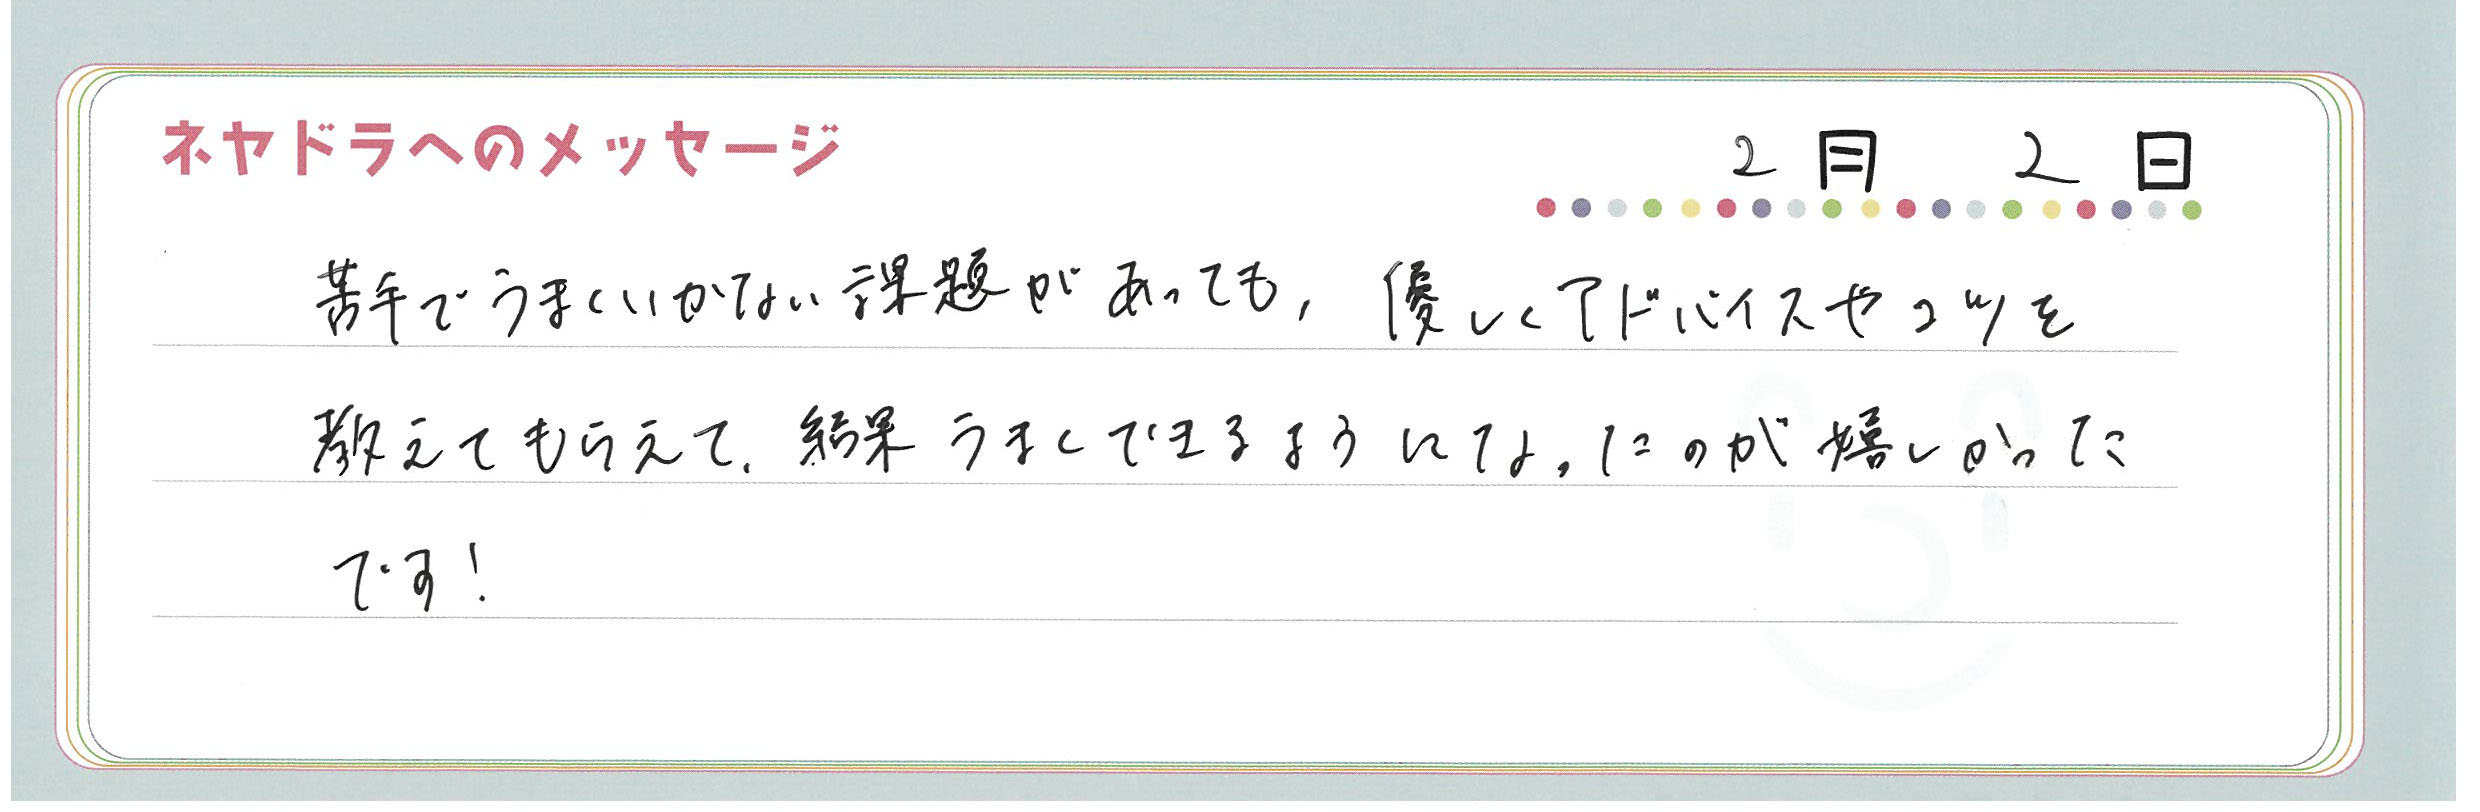 ネヤドラへのメッセージ
2月 2日
苦手でうまくいかない課題があっても, 優しくアドバイスやコツを
教えてもらえて、結果うまくできるようになったのが嬉しかった
です!